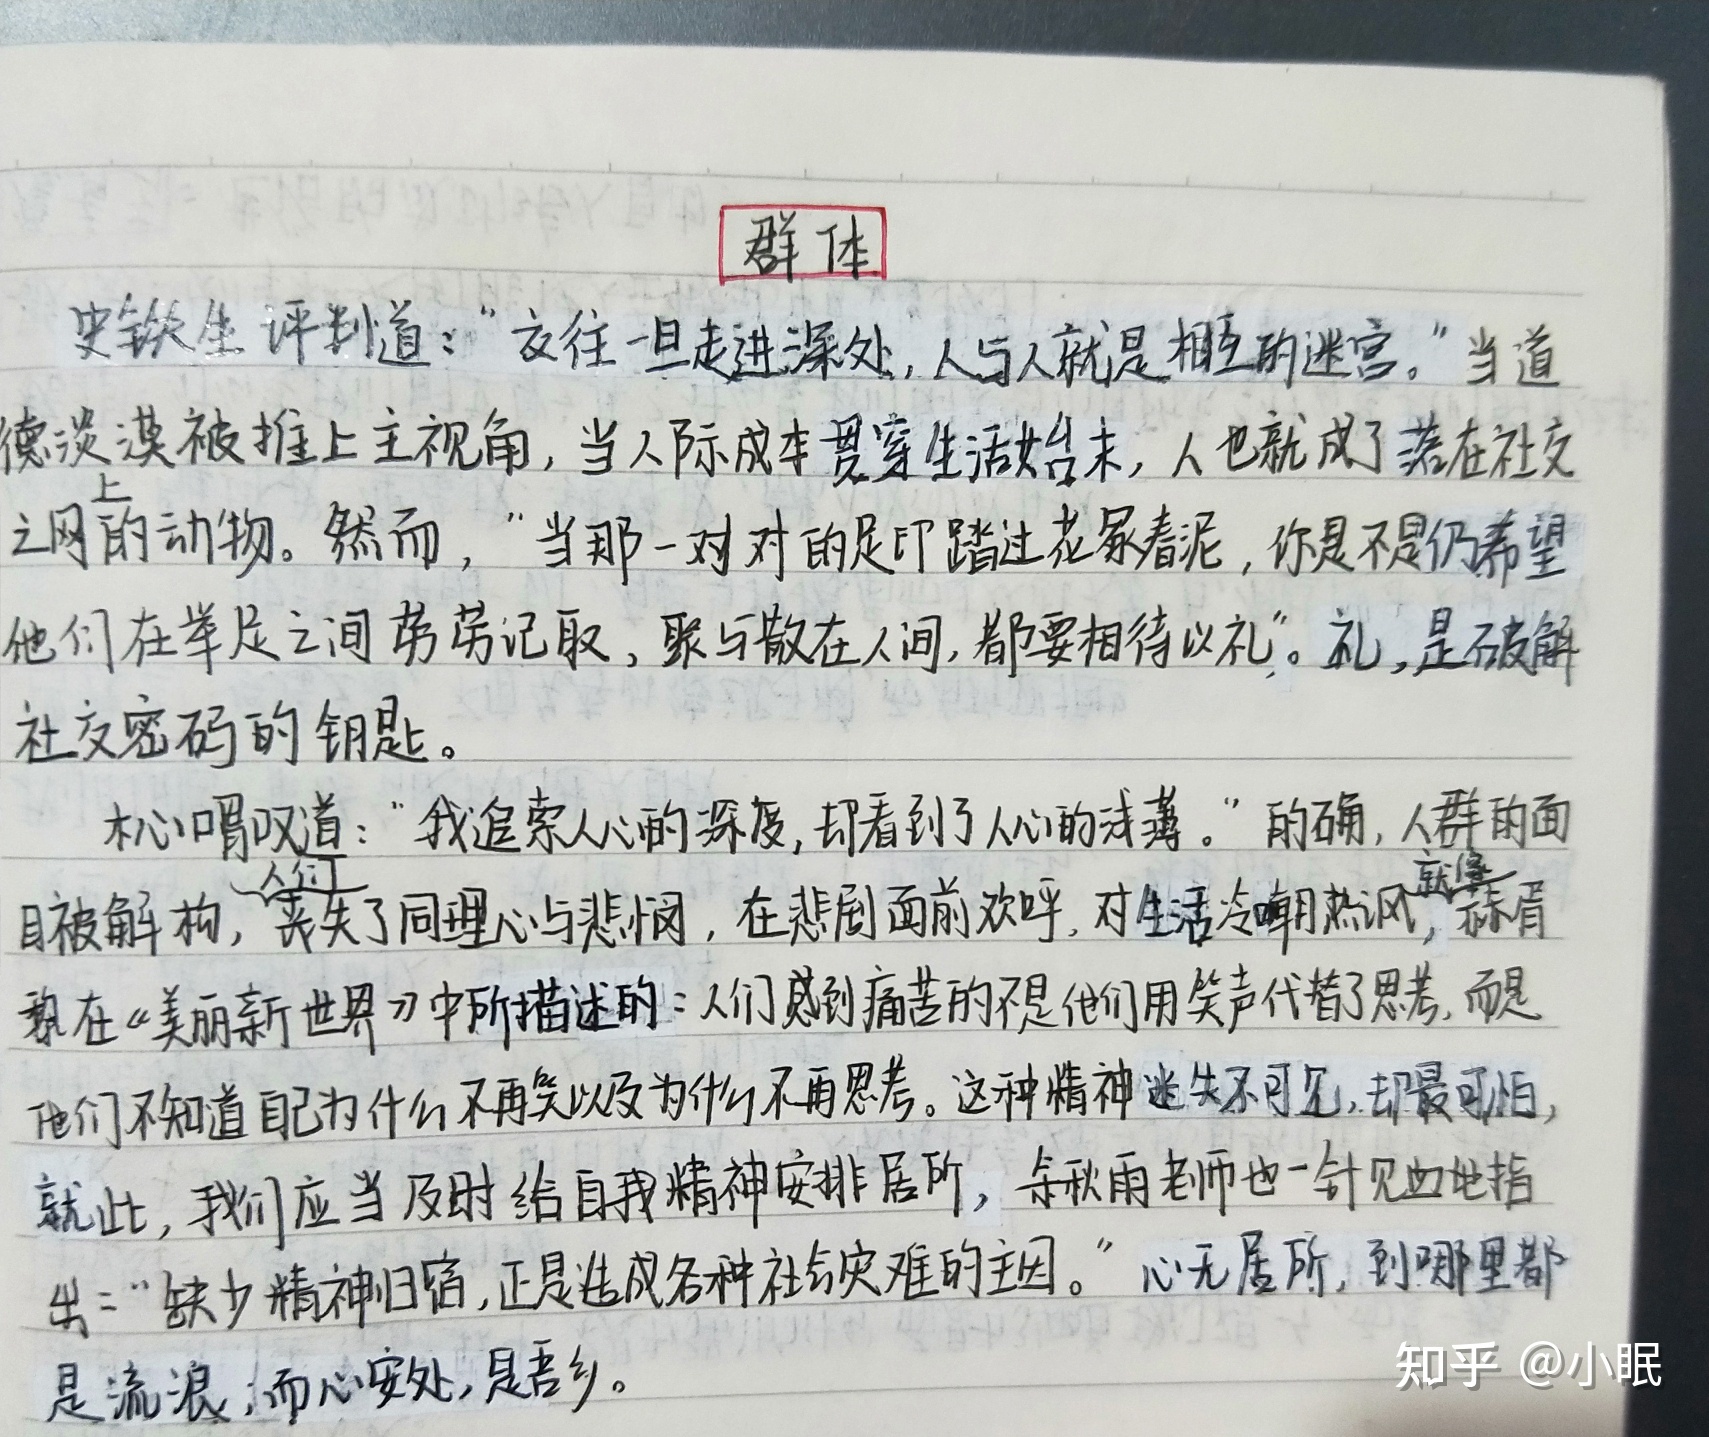 群体
史铁生评判道：“交往一旦走进深处，人与人就是相互的迷宫。”当道
德淡漠被推上主视角，当人际成本贯穿生活始末，人也就成了落在社交
之网上的动物。然而，“当那一对对的足印踏过花冢春泥，你是不是仍希望
他们在举足之间劳劳记取，聚与散在人间，都要相待以礼”。礼，是破解
社交密码的钥匙。
木心喟叹道：“我追索人心的深度，却看到了人心的浅薄。”的确，人群的面
目被解构，人们丧失了同理心与悲悯，在悲剧面前欢呼，对生活冷嘲热讽，就像赫胥
黎在《美丽新世界》中所描述的：人们感到痛苦的不是他们用笑声代替了思考，而是
他们不知道自己为什么不再笑以及为什么不再思考。这种精神迷失不可见，却最可怕，
就此，我们应当及时给自我精神安排居所，余秋雨老师也一针见血地指
出：“缺少精神归宿，正是造成各种社会灾难的主因。”心无居所，到哪里都
是流浪，而心安处，是吾乡。
知乎 @小眠